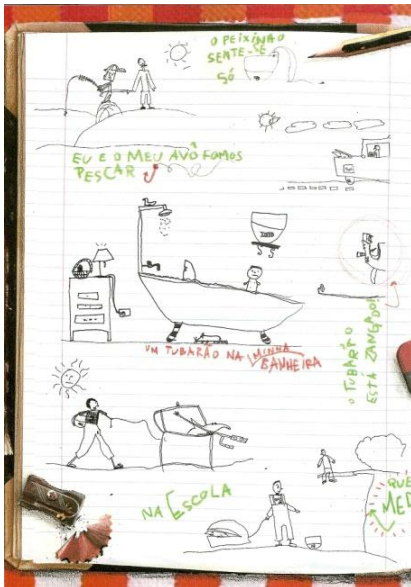 O PEIXINHO
SENTE-SE
SÓ
EU E O MEU AVÔ FOMOS
PESCAR
UM TUBARÃO NA MINHA
BANHEIRA
O TUBARÃO
ESTÁ ZANGADO!
NA ESCOLA
QUE